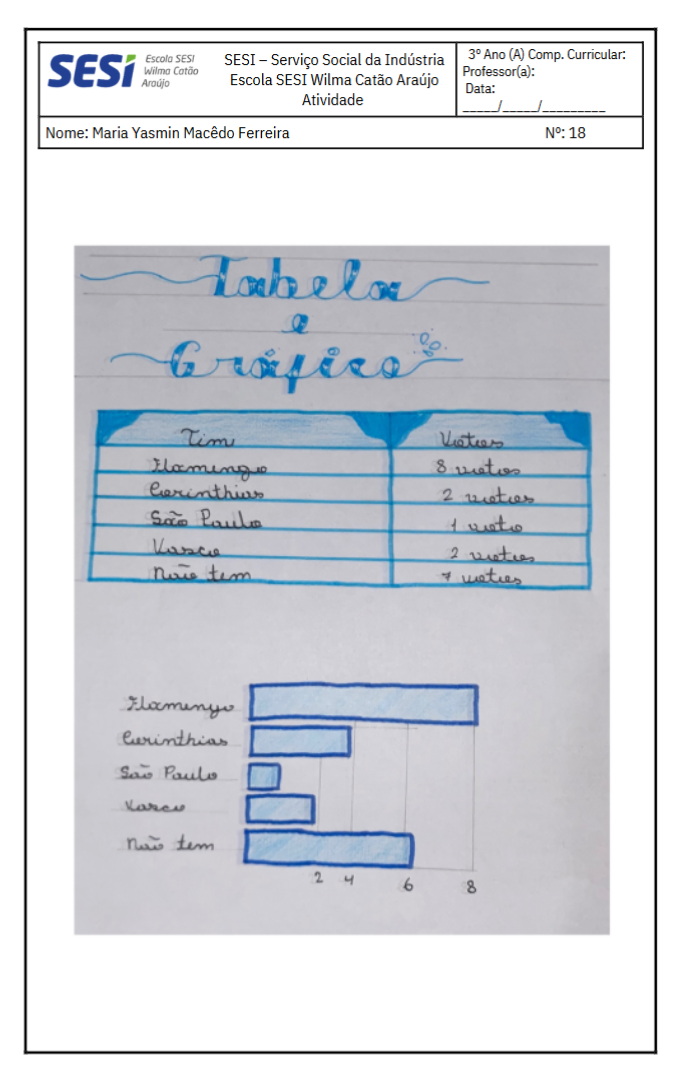 SESI Escola SESI
Wilma Catão
Araújo
SESI – Serviço Social da Indústria
Escola SESI Wilma Catão Araújo
Atividade
3º Ano (A) Comp. Curricular:
Professor(a):
Data:
_____/_____/_________
Nome: Maria Yasmin Macêdo Ferreira Nº: 18
Tabela
e
Gráfico
Tim Votos
Flamengo 8 votos
Corinthias 2 votos
São Paulo 1 voto
Vasco 2 votos
Não tem 7 votos
Flamengo
Corinthias
São Paulo
Vasco
Não tem
2 4 6 8